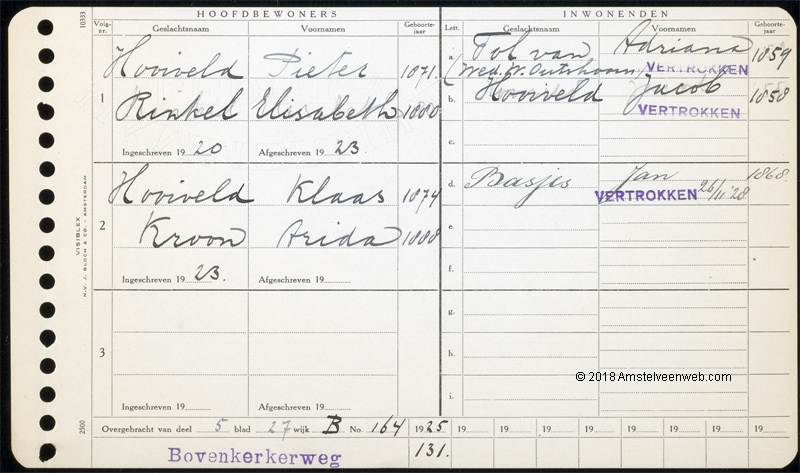 HOOFDBEWONERS
INWONENDEN
Volg-nr. Geslachtsnaam Voornamen Geboorte-jaar
Lett. Geslachtsnaam Voornamen Geboorte-jaar
1 Hooiveld Pieter 1871.
Rinkel Elisabeth 1888
Ingeschreven 19 20 Afgeschreven 19 23.
a. Tol van Adriana 1859
(Wed. W. Outshoorn) VERTROKKEN
b. Hooiveld Jacob 1858
VERTROKKEN
c.
2 Hooiveld Klaas 1874
Kroon Arida 1888
Ingeschreven 19 23. Afgeschreven 19
d. Basjes Jan 1868.
VERTROKKEN 26/11 '28
e.
f.
3
Ingeschreven 19 Afgeschreven 19
g.
h.
i.
© 2018 Amstelveenweb.com
Overgebracht van deel 5 blad 27 wijk B No. 164 1925 19 19 19 19 19 19 19 19
Bovenkerkerweg 131.
10333
VISIBLEX
N.V. J. BLOCH & CO. - AMSTERDAM
2500